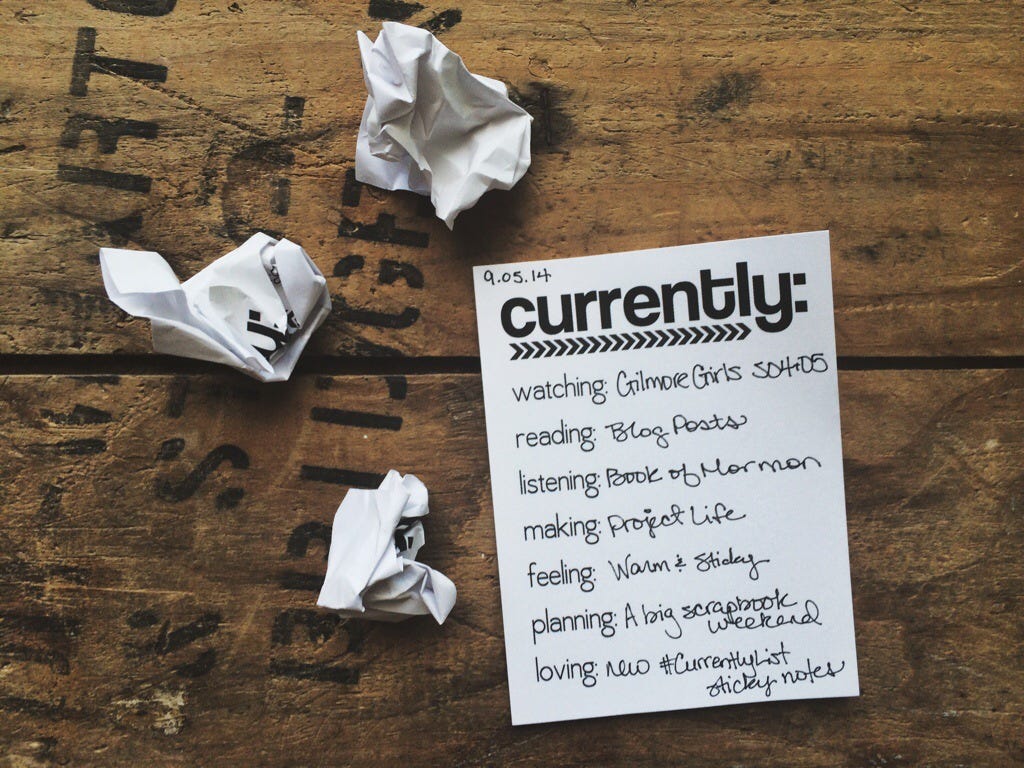 9.05.14
currently:
watching: Gilmore Girls S04E05
reading: Blog Posts
listening: Book of Mormon
making: Project Life
feeling: Warm & Sticky
planning: A big scrapbook
weekend
loving: new #CurrentlyList
sticky notes